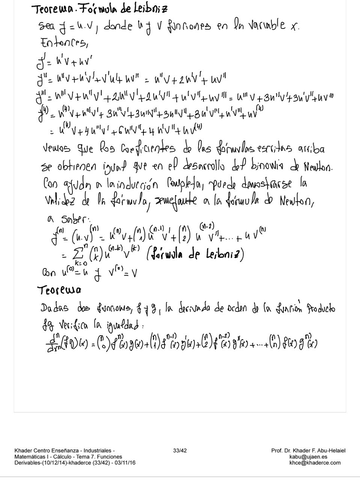 Teorema. Fórmula de Leibniz
Sea y = u.v, donde u y v funciones en la variable x.
Entonces,
y' = u'v + uv'
y'' = u''v + u'v' + v'u' + uv'' = u''v + 2u'v' + uv''
y''' = u'''v + u''v' + 2u''v' + 2u'v'' + u'v'' + uv''' = u'''v + 3u''v' + 3u'v'' + uv'''
= u⁽⁴⁾v + 4u'''v' + 6u''v'' + 4u'v''' + uv⁽⁴⁾
Vemos que los coeficientes de las fórmulas escritas arriba
se obtienen igual que en el desarrollo del binomio de Newton.
Con ayuda a la inducción completa, puede demostrarse la
validez de la fórmula, semejante a la fórmula de Newton,
a saber:
y⁽ⁿ⁾ = (u.v)⁽ⁿ⁾ = u⁽ⁿ⁾v + (n 1) u⁽ⁿ⁻¹⁾v' + (n 2) u⁽ⁿ⁻²⁾v'' + ... + uv⁽ⁿ⁾
= Σₖ₌₀ⁿ (n k) u⁽ⁿ⁻ᵏ⁾v⁽ᵏ⁾ (fórmula de Leibniz)
Con u⁽⁰⁾ = u y v⁽⁰⁾ = v
Teorema
Dadas dos funciones, f y g, la derivada de orden de la función producto
fg verifica la igualdad:
dⁿ/dxⁿ (fg)(x) = (n 0) f⁽ⁿ⁾(x)g(x) + (n 1) f⁽ⁿ⁻¹⁾(x)g'(x) + (n 2) f⁽ⁿ⁻²⁾(x)g''(x) + ... + (n n) f(x)g⁽ⁿ⁾(x)
Khader Centro Enseñanza - Industriales -
Matemáticas I - Cálculo - Tema 7. Funciones
Derivables-(10/12/14)-khaderce (33/42) - 03/11/16
33/42
Prof. Dr. Khader F. Abu-Helaiel
kabu@ujaen.es
khce@khaderce.com